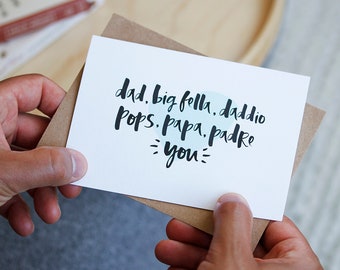 dad, big fella, daddio
pops, papa, padre
you